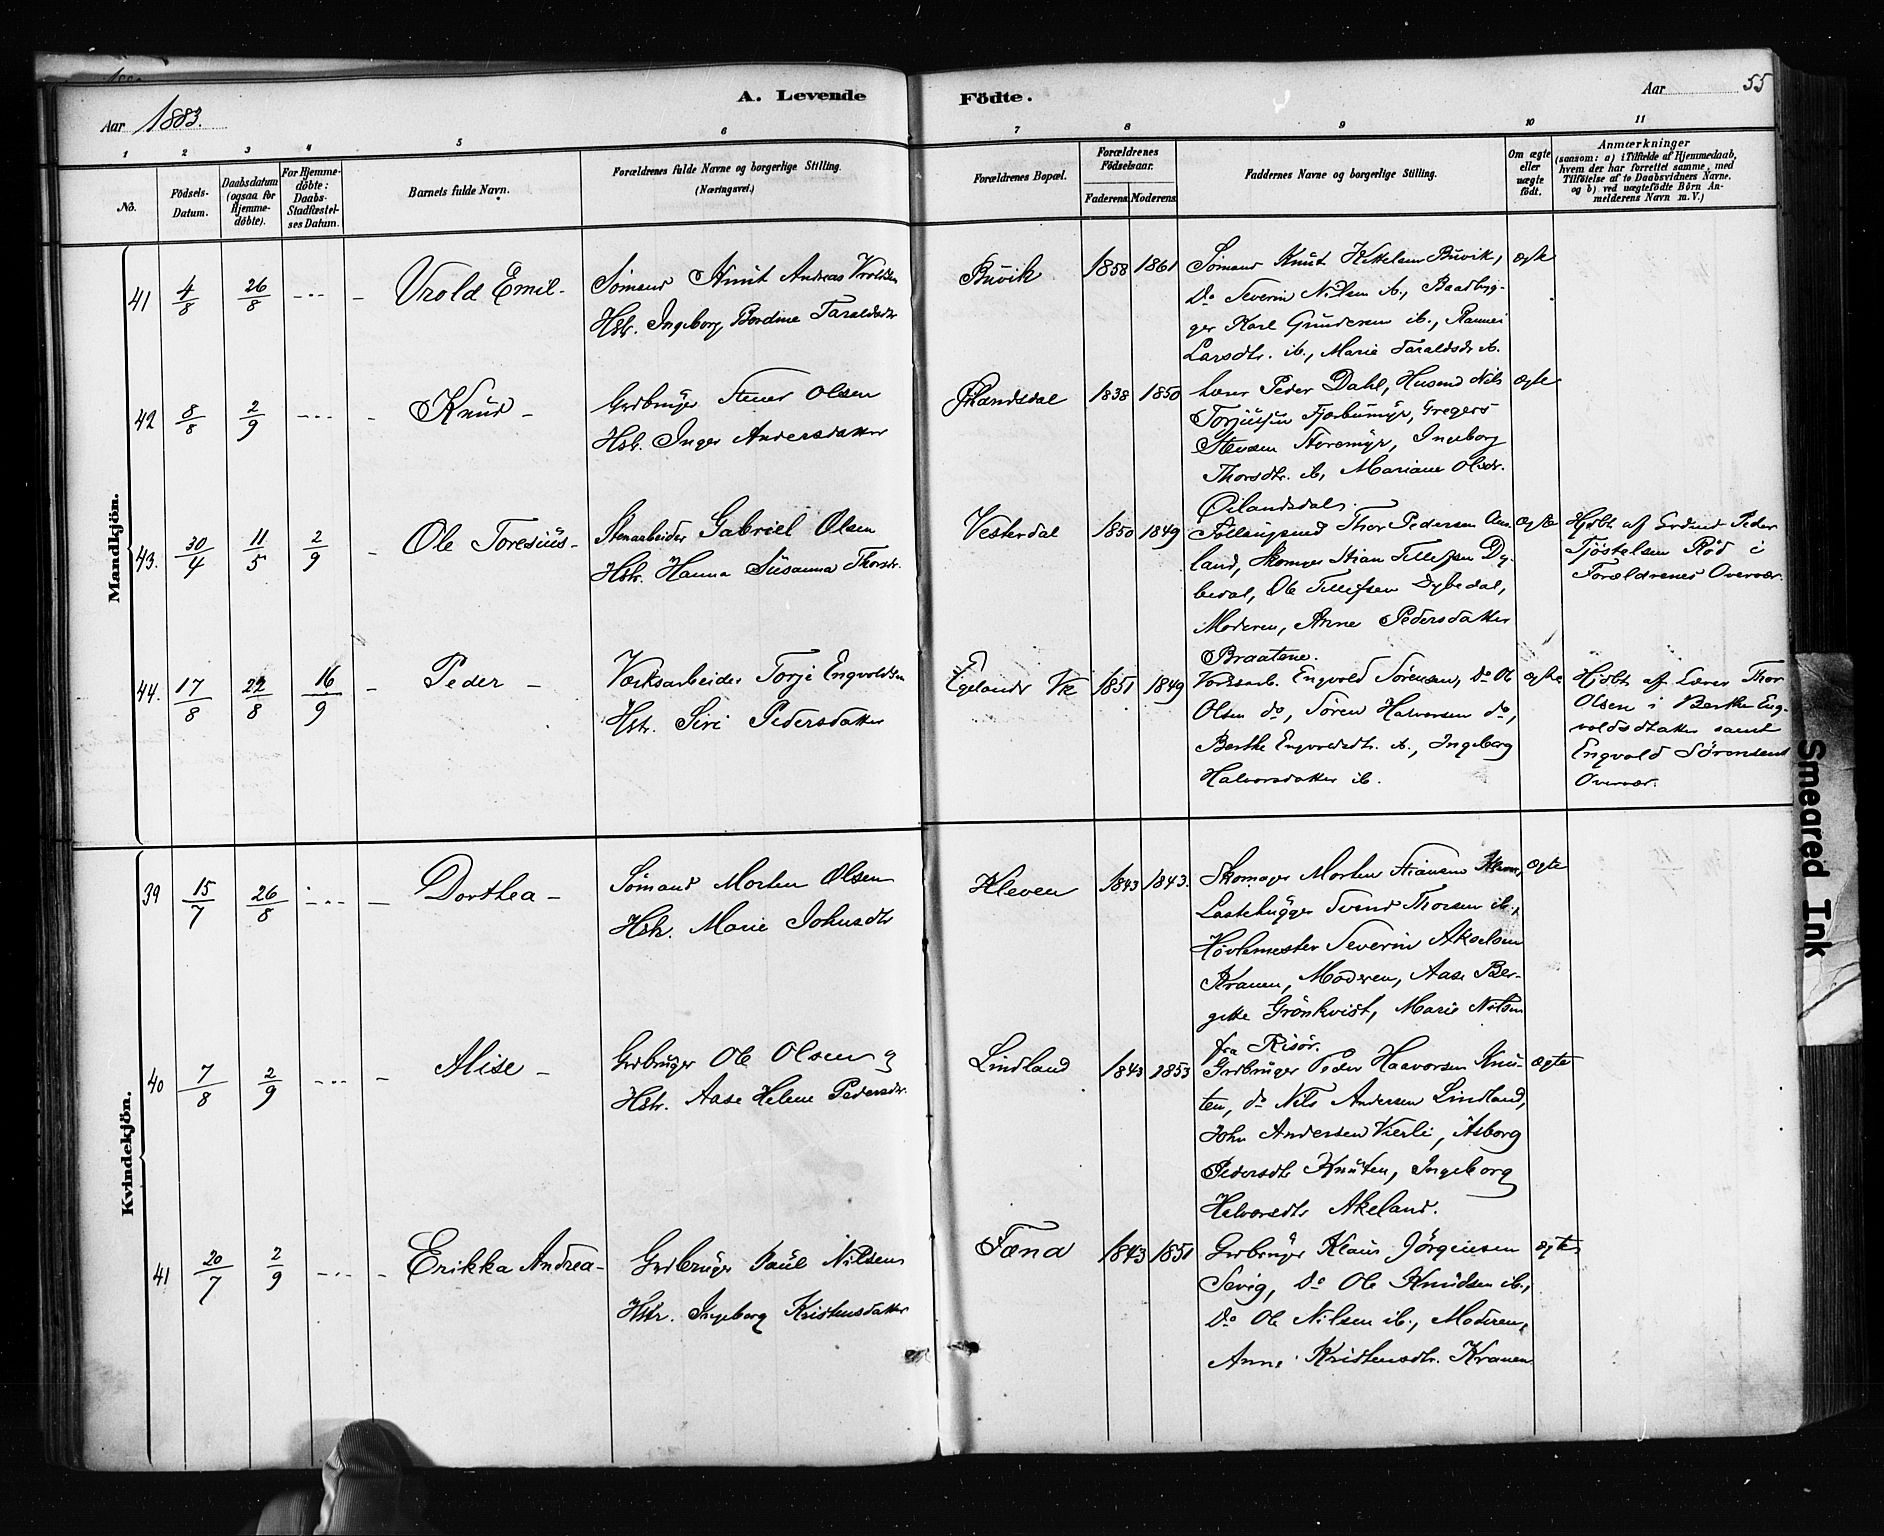 Aar 1883.
A. Levende Födte.
Aar 55
1 2 3 4 5 6 7 8 9 10 11
No.
Födsels-Datum.
Daabsdatum (ogsaa for Hjemme-döbte).
For Hjemme-döbte: Daabs-Stadfæstel-ses Datum.
Barnets fulde Navn.
Forældrenes fulde Navne og borgerlige Stilling. (Næringsvei.)
Forældrenes Bopæl.
Forældrenes Födselsaar.
Faderens. Moderens.
Faddernes Navne og borgerlige Stilling.
Om ægte eller uægte födt.
Anmærkninger
(saasom: a) i Tilfælde af Hjemmedaab, hvem der har forrettet samme, med Tilföielse af to Daabsvidners Navne, og b) ved uægtefödte Börn An-melderens Navn m. V.)
Mandkjön.
41 4/8 26/8 Vrold Emil
Sømand Knut Andreas Vroldsen
Hstr. Ingeborg Bordine Taraldsdtr
Buvik 1858 1861
Sømand Knut Buvik,
Do Severin Nilsen ib., Baadbyg-
ger Karl Gundersen ib.,
Larsdtr. ib., Marie Taraldsdr ib.
ægte
42 8/8 2/9 Knud
Grdbruger Stener Olsen
Hstr. Inger Andersdatter
1838 1850
Lærer Peder Dahl, Husmd Nils
Torjussen Gregers
Stensen Storemyr, Ingeborg
Thorsdtr. ib, Mariane Olsdr.
Øilandsdal.
ægte
43. 30/4 11/5 2/9 Ole Toresius
Stenarbeider Gabriel Olsen
Hstr. Hanna Susanna Thorsdtr.
Vesterdal 1850 1849
Thor Pedersen Aas-
land, Skomager Stian Tellefsen Dy-
bedal, Ole Tellefsen Dybedal,
Moderen, Anne Pedersdatter
Braatene.
ægte
Hjdbt af Grdmd Peder
Tjöstelsen Röd i
Forældrenes Overvær.
44. 17/8 22/8 16/9 Peder
Værksarbeider Torje Engvoldsen
Hstr. Siri Pedersdatter
Egelands Vk 1851 1849
Værksarb. Engvold Sørensen, Do Ole
Olsen do, Søren Halvorsen do,
Berthe Engvoldsdtr. ib., Ingeborg
Halvorsdatter ib.
ægte
Hjdbt af Lærer Thor
Olsen i Berthe Eng-
voldsdtatter samt
Engvold Sørensens
Overvær.
Kvindekjön.
39 15/7 26/8 Dorthea
Sømand Morten Olsen
Hstr. Marie Johnsdtr
Kleven 1843 1843.
Skomager Morten Stiansen
Lastehugger Svend Thorsen ib.,
Høvlemester Severin Akselsen
Kranen, Moderen, Aase Ber-
gitte Grönkvist, Marie Nilsen
fra Risör.
ægte
40 7/8 2/9 Alise
Grdbruger Ole Olsen og
Hstr. Aase Helene Pedersdtr.
Lindland 1843 1853
Grdbruger Peder Haavorsen Knu-
ten, do Nils Andersen Lindland,
John Andersen Vierli, Asborg
Pedersdtr Knuten, Ingeborg
Halvorsdtr Akeland.
ægte
41 20/7 2/9 Erikka Andrea
Grdbruger Paul Nilsen
Hstr. Ingeborg Kristensdatter
Fæna 1843 1851
Grdbruger Klaus Jörgensen
Sevig, Do Ole Knudsen ib.,
Do Ole Nilsen ib., Moderen,
Anne Kristensdtr. Kranen
ægte
Smeared Ink